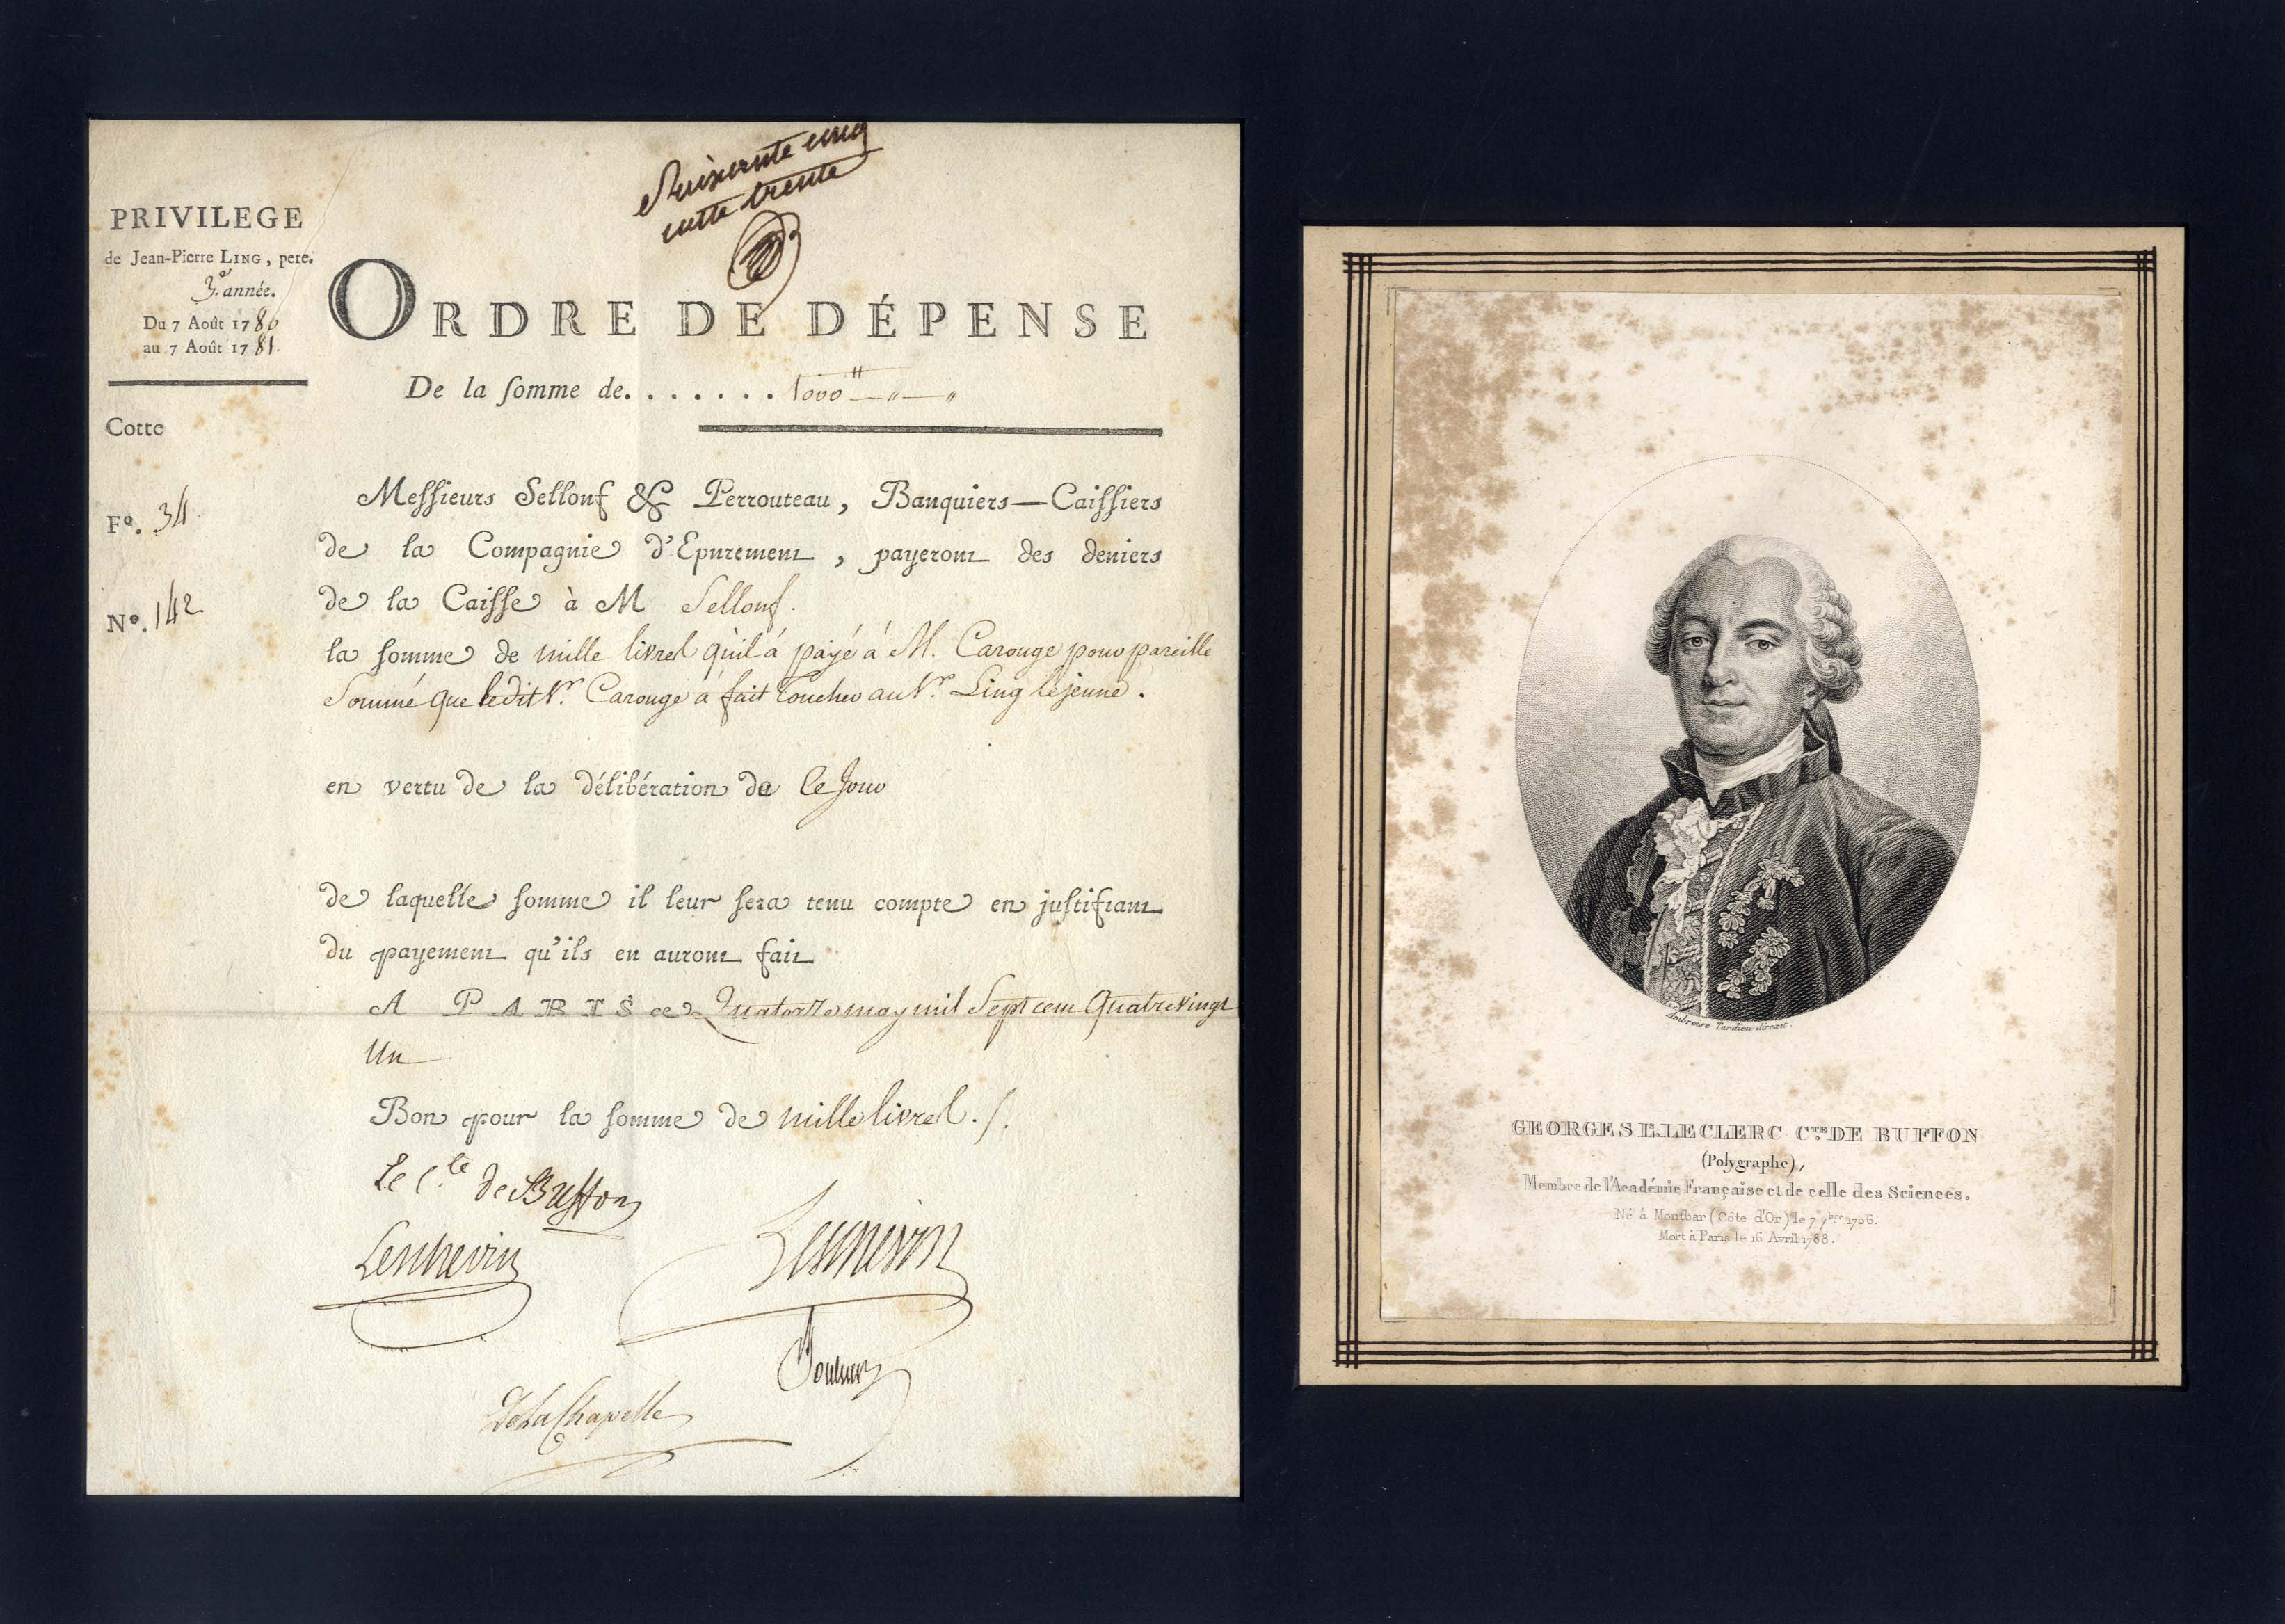 Soixante cinq
cotte trente
PRIVILEGE
de Jean-Pierre LING, pere.
3e. année.
Du 7 Août 1780
au 7 Août 1781.
ORDRE DE DÉPENSE
De la somme de. . . . . . . 1000 ₶ — " — "
Cotte
Fo. 34.
No. 142
Messieurs Sellonf & Perrouteau, Banquiers—Caissiers
de la Compagnie d'Epurement, payeront des deniers
de la Caisse à M Sellonf.
la somme de mille livres qu'il á payé á M. Carouge pour pareille
Somme que ledit Sr. Carouge á fait toucher au Sr. Ling le jeune.
en vertu de la délibération de Ce Jour
de laquelle somme il leur sera tenu compte en justifiant
du payement qu'ils en auront fait
A PARIS ce Quatorze may mil Sept cent Quatre Vingt
Un
Bon pour la somme de mille livres ./.
Le Cte de Buffon
Leschevin
Leschevin
De La Chapelle
Ambroise Tardieu direxit.
GEORGES L. LECLERC CTE. DE BUFFON
(Polygraphe),
Membre de l'Académie Française et de celle des Sciences.
Né à Montbar (Côte-d'Or) le 7 7bre 1706.
Mort à Paris le 16 Avril 1788.